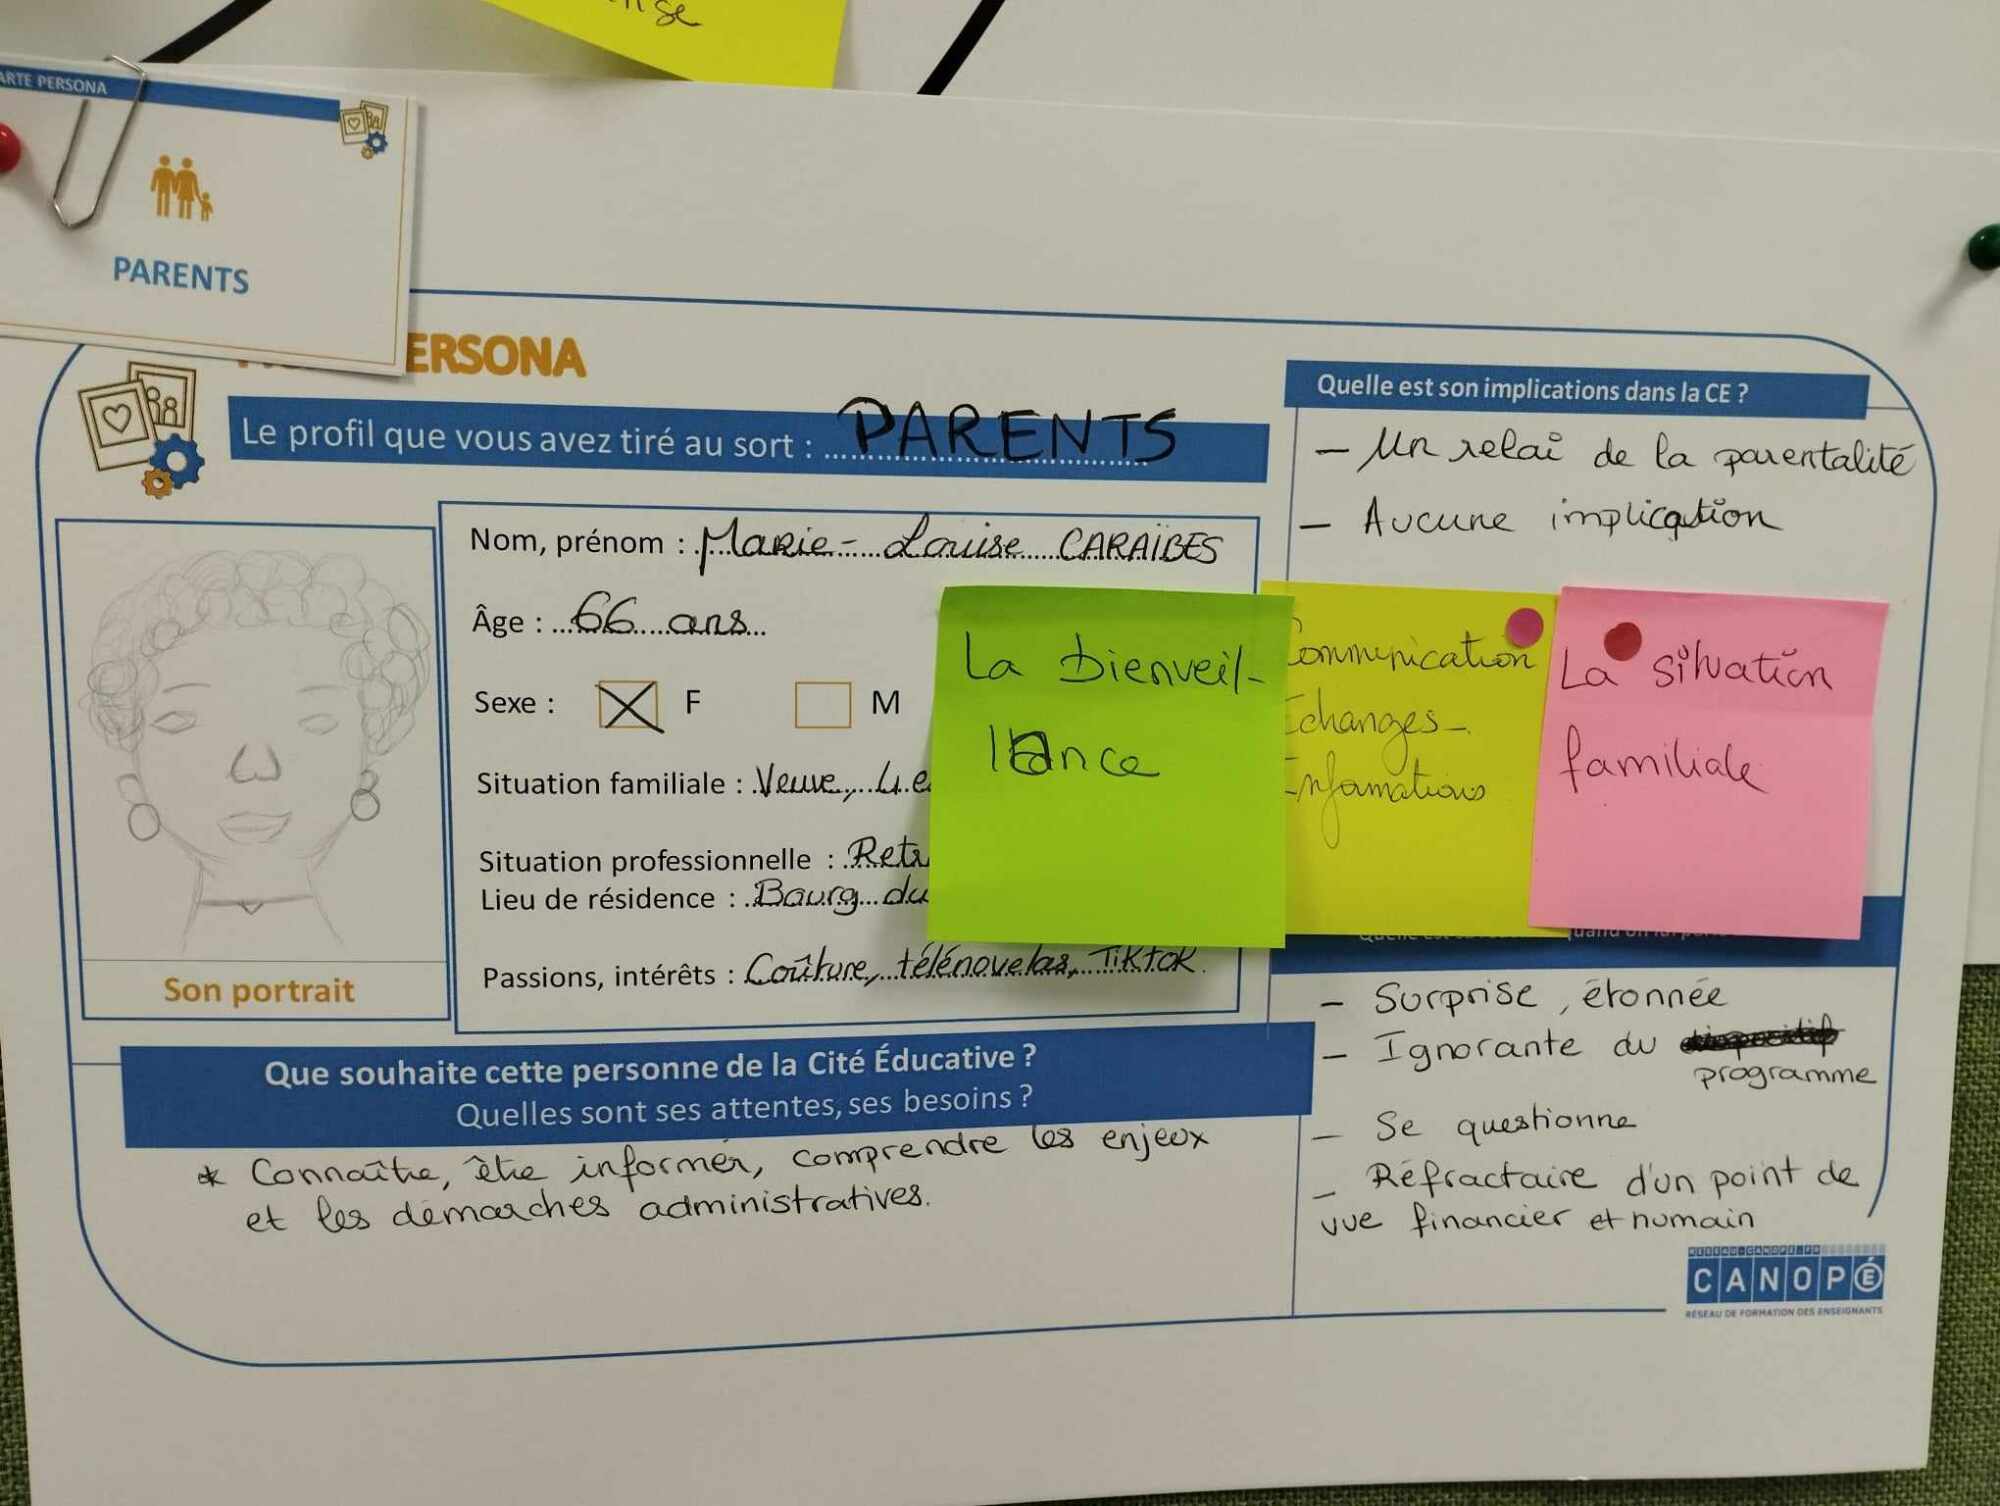 ARTE PERSONA
PARENTS
ERSONA
Le profil que vous avez tiré au sort : PARENTS
Nom, prénom : Marie-Louise CARAÏBES
Âge : 66 ans
Sexe : F M
Situation familiale : Veuve, 4 e
Situation professionnelle : Retr
Lieu de résidence : Bourg du
Passions, intérêts : Coûture, télénovelas, TikTok.
Son portrait
Que souhaite cette personne de la Cité Éducative ?
Quelles sont ses attentes, ses besoins ?
* Connaître, être informer, comprendre les enjeux
et les démarches administratives.
Quelle est son implications dans la CE ?
- Un relai de la parentalité
- Aucune implication
La bienveil-
lance
Communication
Echanges -
Informations
La situation
familiale
- Surprise, étonnée
- Ignorante du
programme
- Se questionne
- Réfractaire d'un point de
vue financier et humain
RESEAU-CANOPE.FR
CANOPÉ
RÉSEAU DE FORMATION DES ENSEIGNANTS